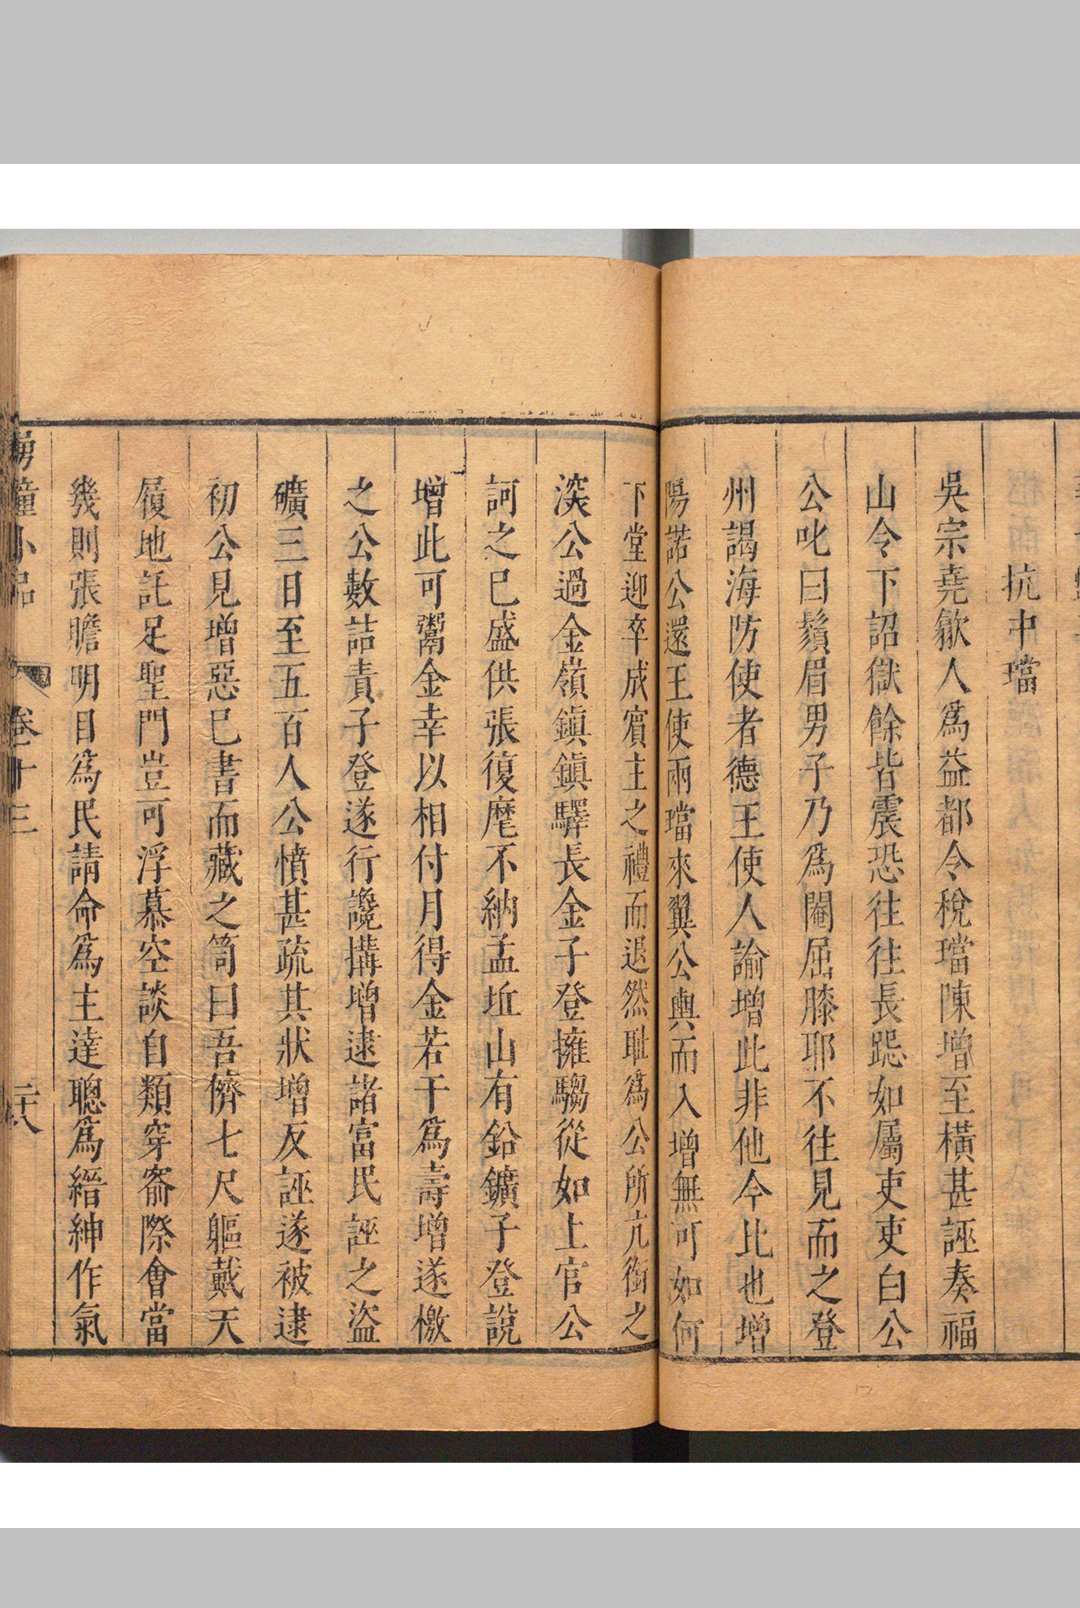 抗中璫
吳宗堯歙人爲益都令稅璫陳增至橫甚誣奏福
山令下詔獄餘皆震恐往往長跽如屬吏吏白公
公叱曰鬚眉男子乃爲閹屈膝耶不往見而之登
州謁海防使者德王使人諭增此非他令比也增
陽諾公還王使兩璫來翼公輿而入增無可如何
下堂迎卒成賓主之禮而退然耻爲公所亢銜之
深公過金嶺鎮鎮驛長金子登擁騶從如上官公
訶之已盛供張復麾不納孟丘山有鉛鑛子登說
增此可鬻金幸以相付月得金若干爲壽增遂檄
之公數詰責子登遂行讒搆增逮諸富民誣之盜
礦三日至五百人公憤甚疏其狀增反誣遂被逮
初公見增惡已書而藏之笥曰吾儕七尺軀戴天
履地託足聖門豈可浮慕空談自類穿窬際會當
幾則張膽明目爲民請命爲主達聰爲縉紳作氣
小品 卷十三 二十八